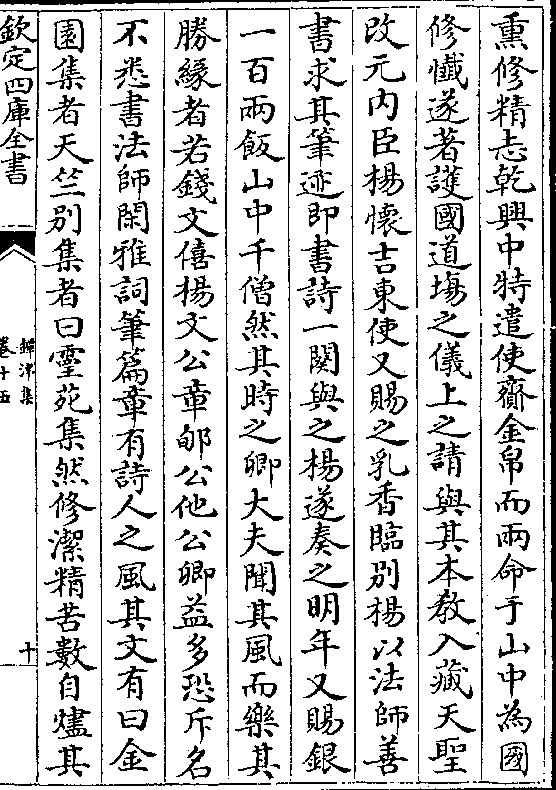 熏修精志乾興中特遣使齎金帛而兩命于山中為國
修懴遂著護國道塲之儀上之請與其本教入藏天聖
改元内臣楊懷吉東使又賜之乳香臨别楊以法師善
書求其筆迹即書詩一闋與之楊遂奏之明年又賜銀
一百兩飯山中千僧然其時之卿大夫聞其風而樂其
勝縁者若錢文僖楊文公章郇公他公卿益多恐斥名
不悉書法師閑雅詞筆篇章有詩人之風其文有曰金
園集者天竺别集者曰靈苑集然修潔精苦數自爐其
欽定四庫全書
鐔津集
卷十五
十